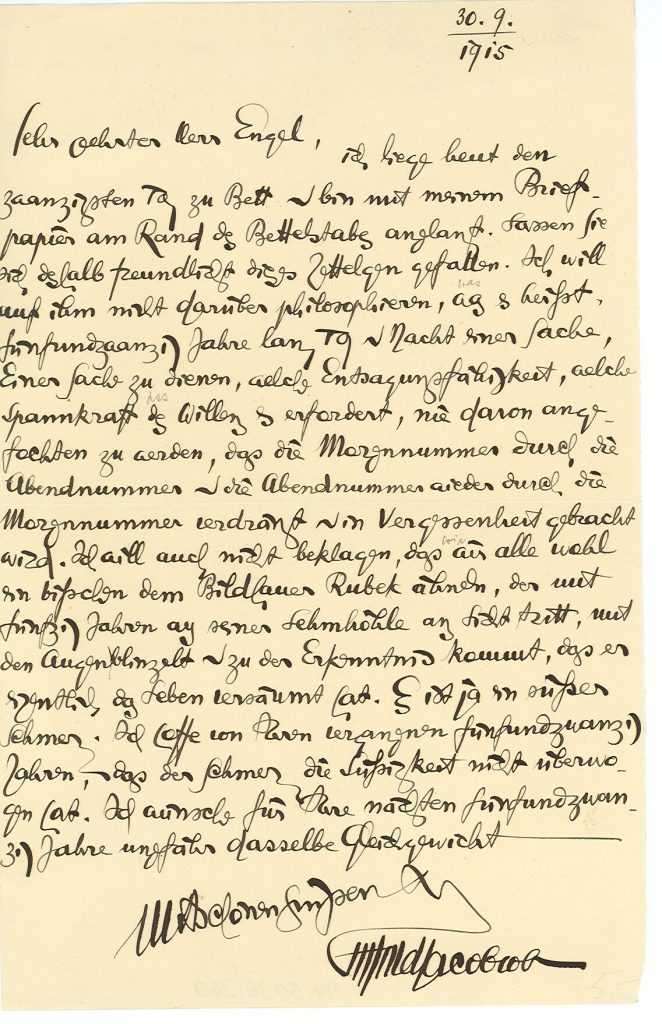 30. 9.
1915
Sehr geehrter Herr Engel,
ich liege heut den
zwanzigsten Tag zu Bett u bin mit meinem Brief-
papier am Rand des Bettelstabes anglangt. Lassen Sie
sich deshalb freundlichst dieses Zettelgen gefallen. Ich will
auf ihm nicht darüber philosophieren, was es heisst,
was
fünfundzwanzig Jahre lang Tag u Nacht einer Sache,
Einer Sache zu dienen, welche Entsagungsfähigkeit, welche
des
Spannkraft des Willens es erfordert, nie davon ange-
fochten zu werden, dass die Morgennummer durch die
Abendnummer u die Abendnummer wieder durch die
Morgennummer verdrängt u in Vergessenheit gebracht
wird. Ich will auch nicht beklagen, dass wir alle wohl
wir
ein bisschen dem Bildhauer Rubek ähneln, der mit
fünfzig Jahren aus seiner Lehmhöhle ans Licht tritt, mit
den Augen blinzelt u zu der Erkenntnis kommt, dass er
eigentlich das Leben versäumt hat. Es ist ja ein süsser
Schmerz. Ich hoffe von Ihren vergangnen fünfundzwanzig
Jahren, dass der Schmerz die Süssigkeit nicht überwo-
gen hat. Ich wünsche für Ihre nächsten fünfundzwan-
zig Jahre ungefähr dasselbe Gleichgewicht
Mit schönen Grüssen
Ihr
Monty Jacobs